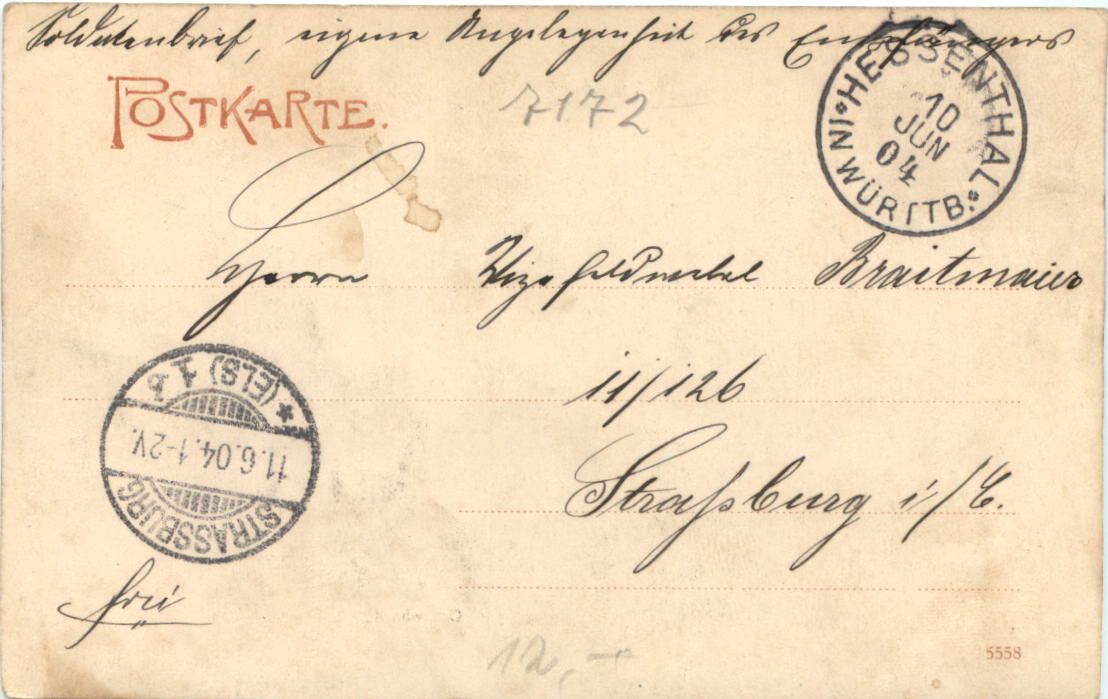 Soldatenbrief, eigene Angelegenheit des Empfängers
POSTKARTE.
7172
HESSENTHAL
10
JUN
04
IN WÜRTTB.
Herrn Vizefeldwebel Braitmaier
11/126
Straßburg i/E.
STRASSBURG
11.6.04.1-2V.
(ELS) 1
frei
12,-
5558